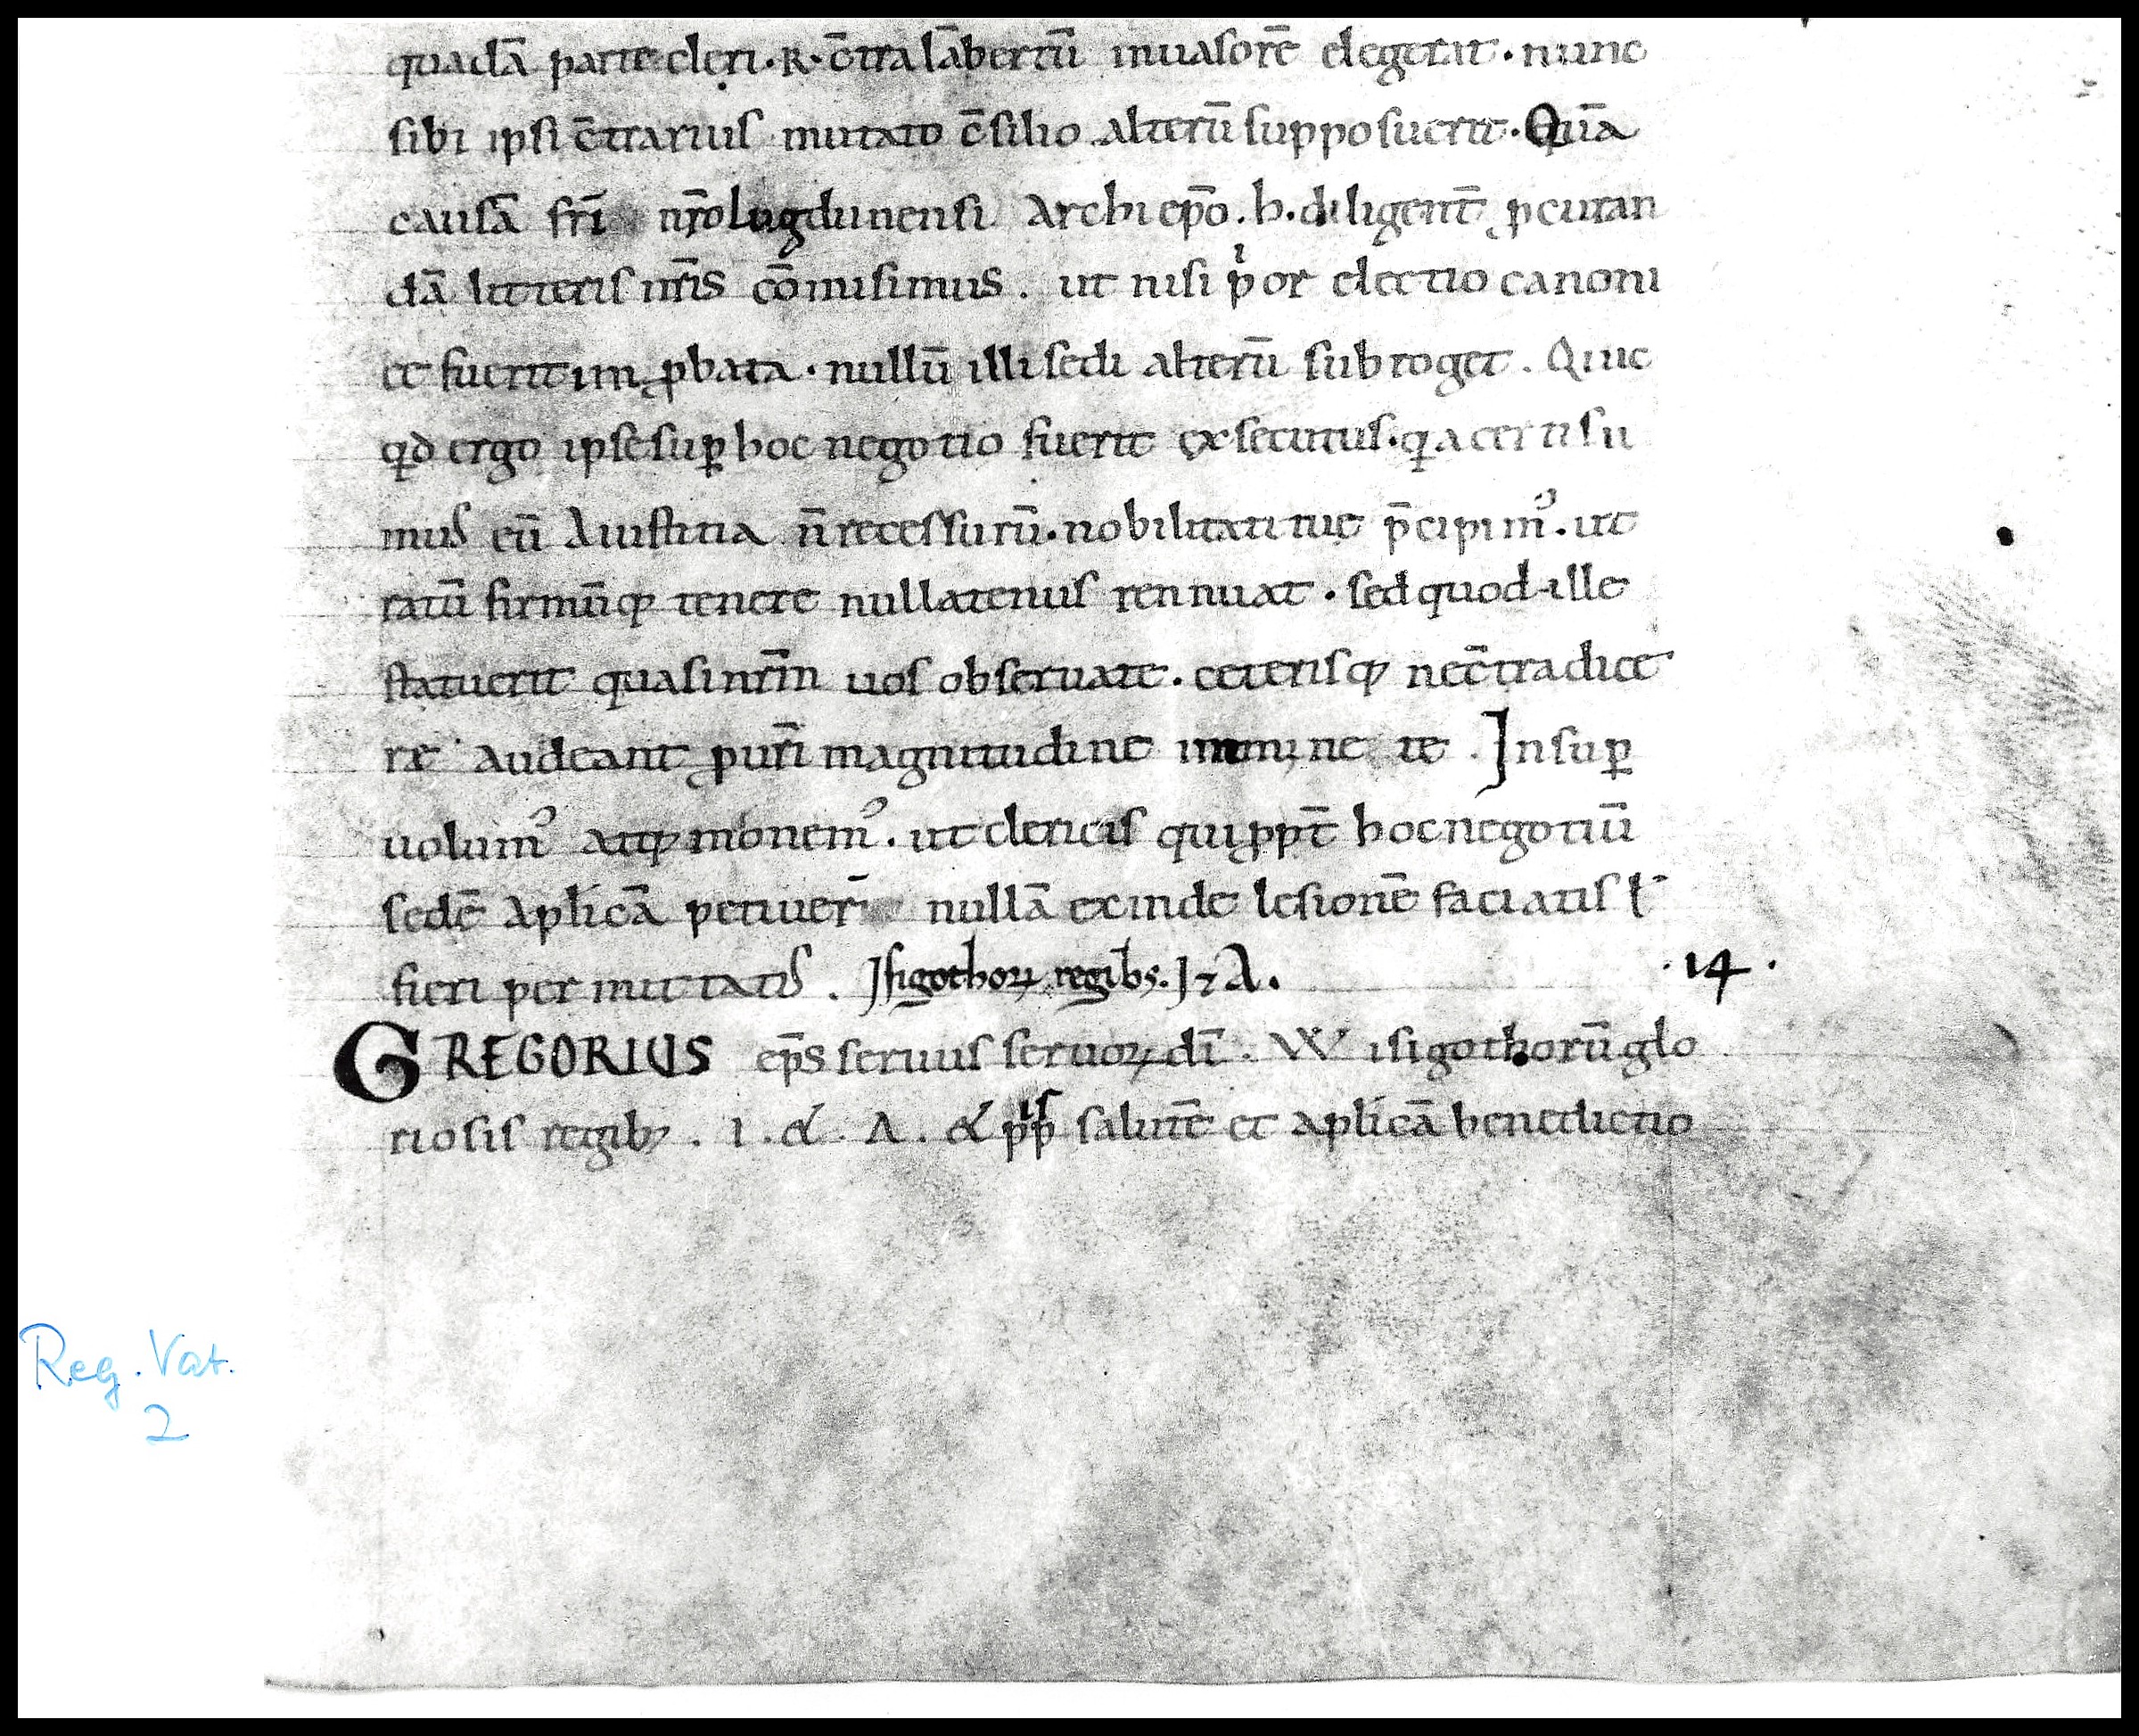 quadā parte cleri·R·c̄tra lābertū inuasorē elegerit·nunc
sibi ipsi c̄trarius mutato c̄silio alterū supposuerit·Quā
causā frī nr̄o Lugdunensi Archiepō.h.diligent̄ ꝓcuran
dā litteris nr̄is cōmisimus. ut nisi pͥor electio canoni
ce fuerit imꝓbata·nullū illi sedi alterū subroget. Quic
qd ergo ipse suꝑ hoc negotio fuerit exsecutus·q a cer ti su
mus eū A iustitia n̄ recessurū·nobilitati tuę p̄cipimꝰ.ut
ratū firmūqꝫ tenere nullatenus rennuat·sed quod ille
statuerit quasi nr̄m uos obseruate·ceterisqꝫ ne c̄tradice
re audeant ꝓ ur̄i magnitudine imminete. Insuꝑ
uolumꝰ atqꝫ monemꝰ.ut clericis qui ꝓpt̄ hoc negotiū
sedē Aplicā petiuer̄ nullā exinde lesionē faciatis ł
fieri permittatis. Isigothoꝝ regibꝫ.I⁊A. ·14·
GREGORIUS ep̄s seruus seruoꝝ dī. Wisigothorū glo
riosis regibꝫ. I. & . A. & pͥˢp salutē et aplicā benedictio
Reg. Vat.
2